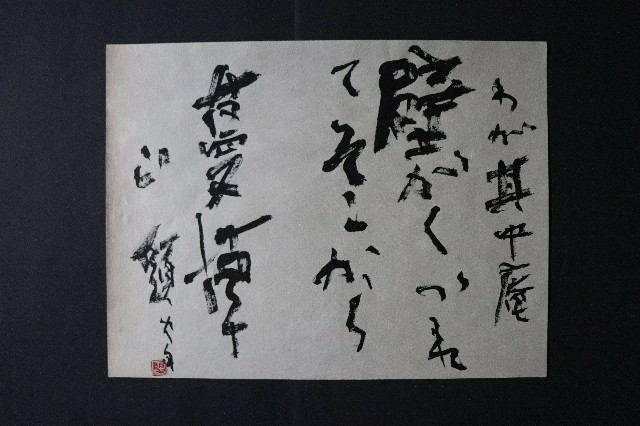 わが其中庵
壁がくづれ
てそこから
蔓草